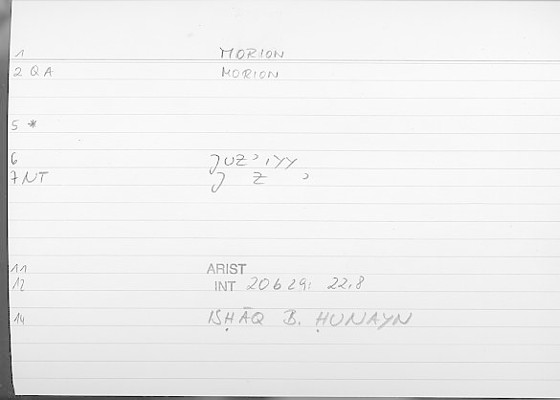 1 MORION
2 QA MORION
5 *
6 JUZʾIYY
7 NT J Z ʾ
11 ARIST
12 INT 20b29; 22,8
14 ISḤĀQ B. ḤUNAYN